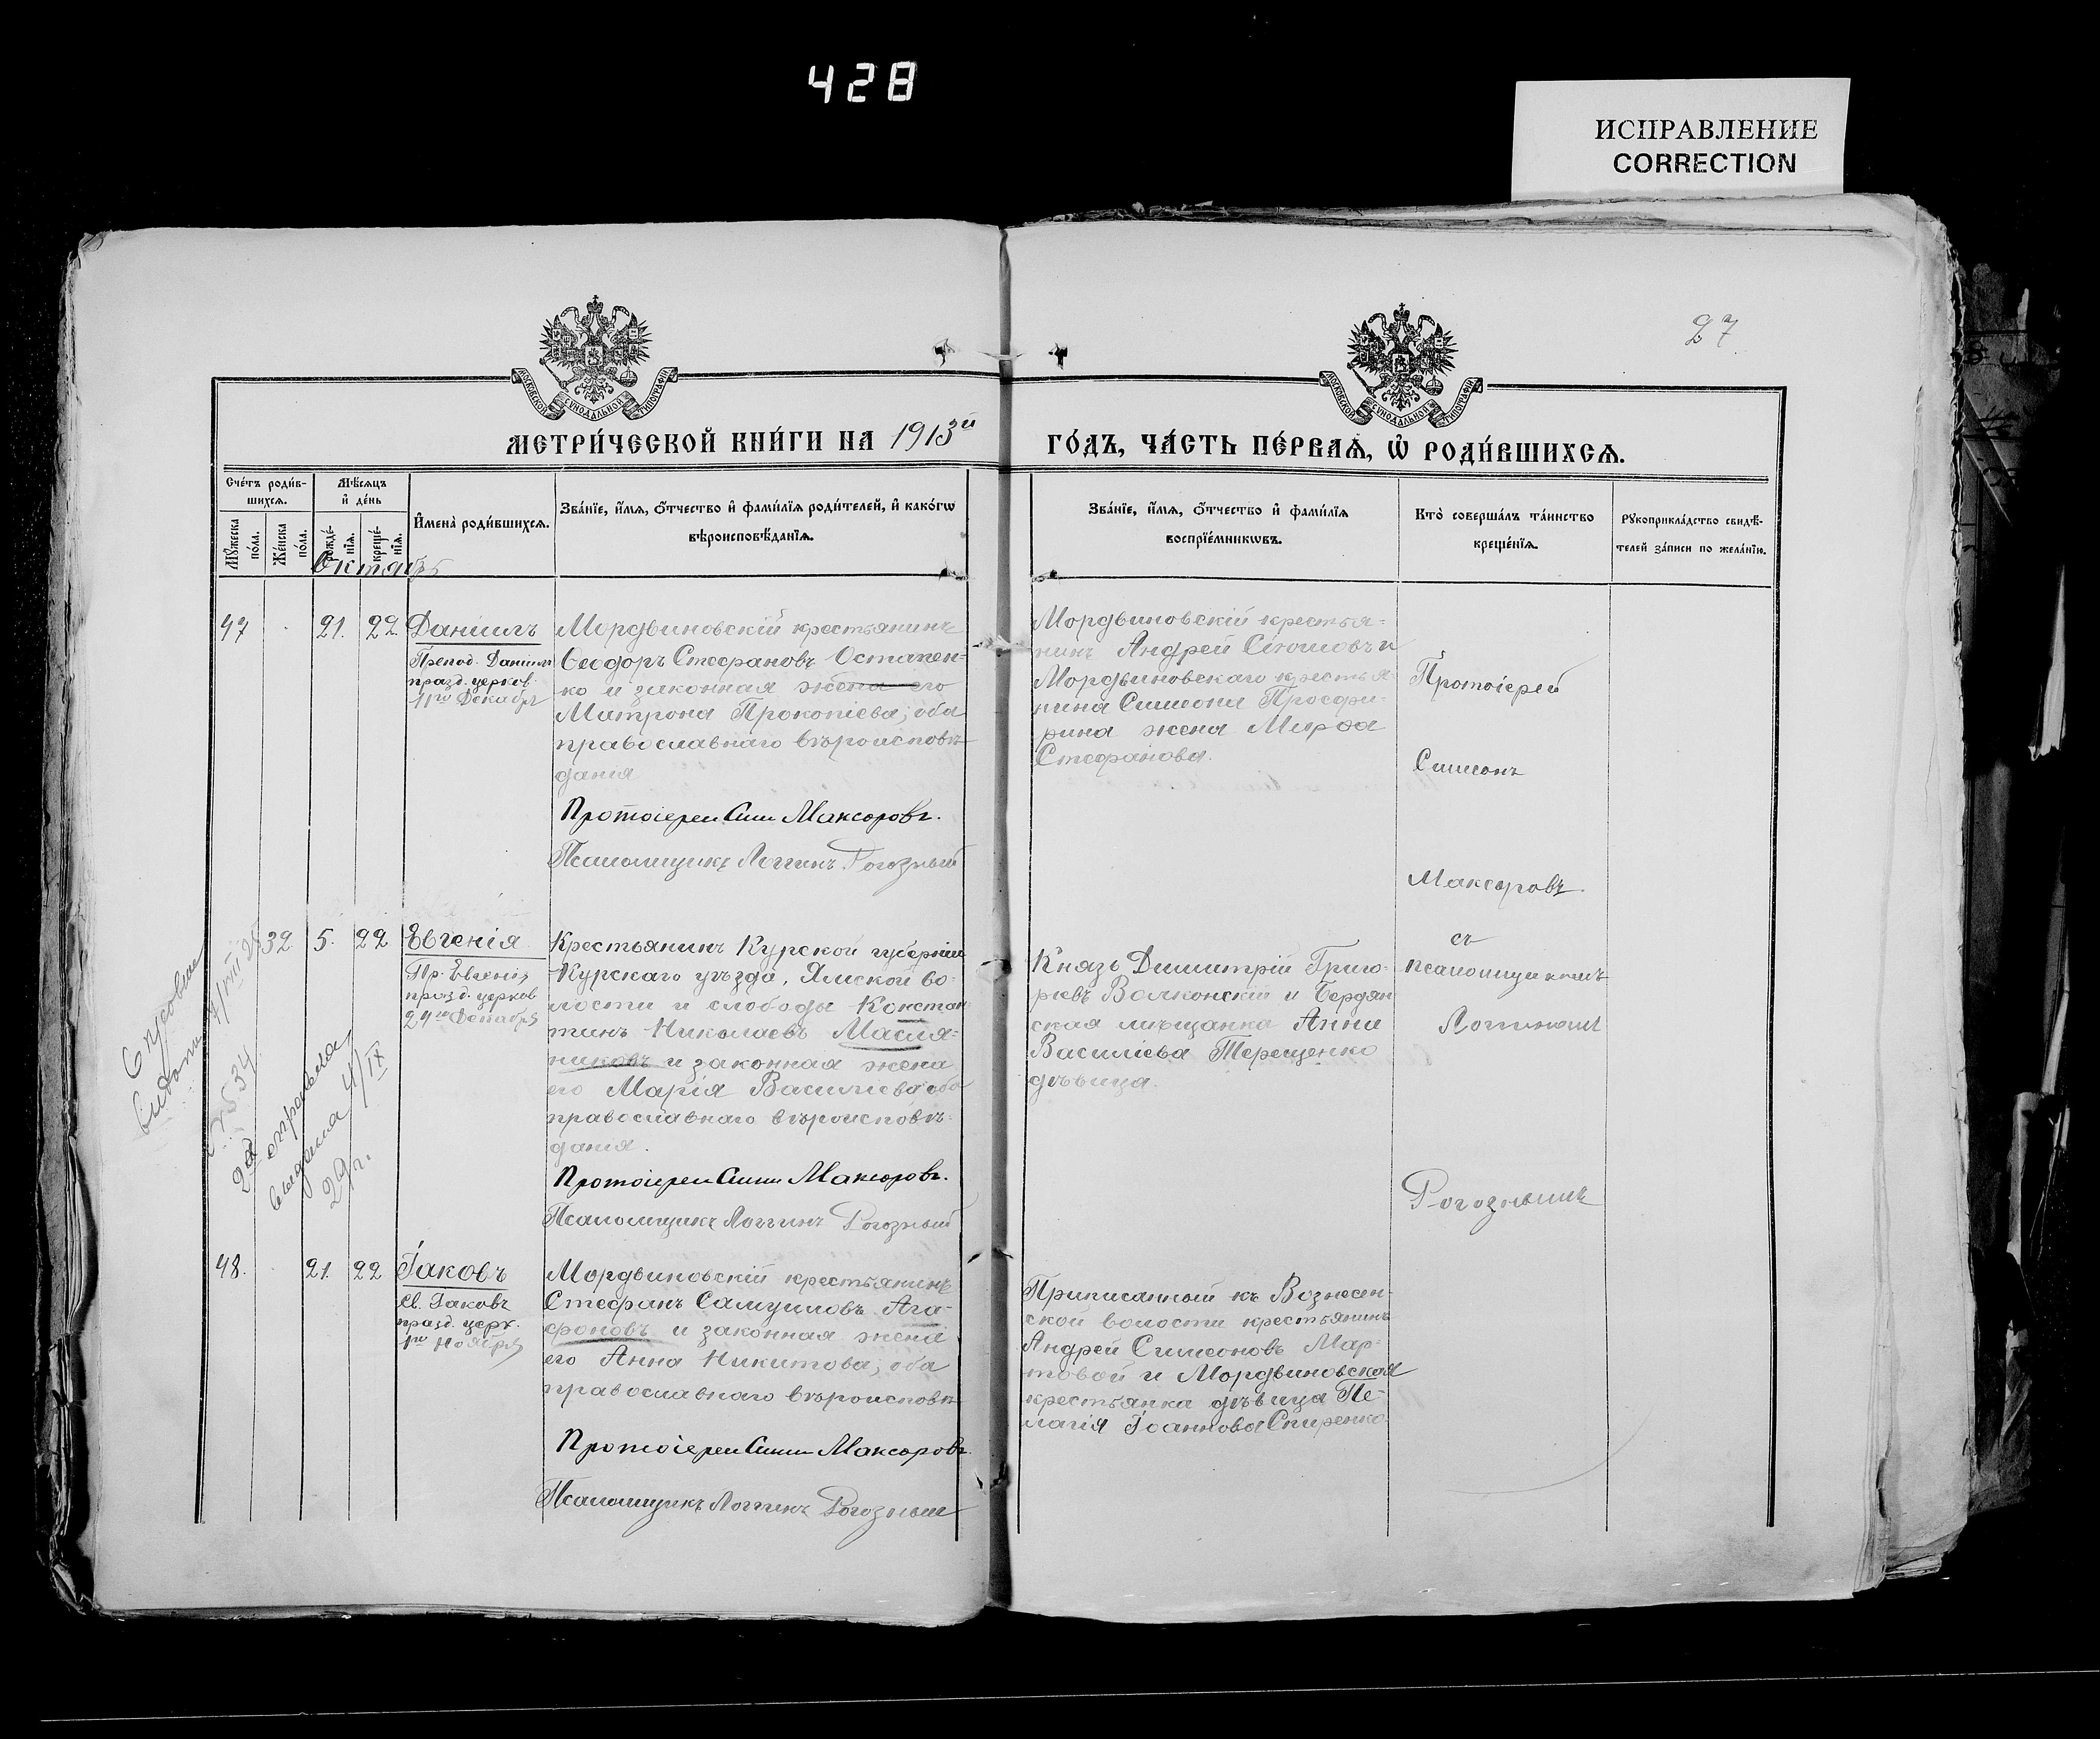 428
ИСПРАВЛЕНИЕ
CORRECTION
27
МОСКОВСКОЙ СѴНОДАЛЬНОЙ ТИПОГРАФІИ
МОСКОВСКОЙ СѴНОДАЛЬНОЙ ТИПОГРАФІИ
МЕТРИ́ЧЕСКОЙ КНИ́ГИ НА 1913й
ГО́ДЪ, ЧА́СТЬ ПЕ́РВАѦ, Ѡ҆ РОДИ́ВШИХСѦ.
Сче́тъ роди́в-
шихсѧ.
Мꙋ́жеска по́ла.
Же́нска по́ла.
Мѣ́сѧцъ
и҆ де́нь
рожде́-
нїѧ.
креще́-
нїѧ.
И҆мена̀ роди́вшихсѧ.
Зва́нїе, и҆́мѧ, ѻ҆́тчество и҆ фами́лїѧ роди́телей, и҆ како́гѡ
вѣроисповѣ́данїѧ.
Зва́нїе, и҆́мѧ, ѻ҆́тчество и҆ фами́лїѧ
воспрїе́мникѡвъ.
Кто̀ соверша́лъ та́инство
креще́нїѧ.
Рꙋкоприкла́дство свидѣ́-
телей за́писи по жела́нїю.
Октябрь
47
21. 22
Даніилъ
Препод. Даніилъ
празд. церков.
11го Декабря
Мордвиновскій крестьянинъ
Ѳеодоръ Стефановъ Остапен-
ко и законная жена его
Матрона Прокопіева, оба
православнаго вѣроисповѣ-
данія
Протоіерей Сим Максоровъ.
Псаломщикъ Логгинъ Рогозный
Мордвиновскій крестья-
нинъ Андрей и
Мордвиновскаго крестья-
нина Симеона
жена Марѳа
Стефанова.
Протоіерей
Симеонъ
Максоровъ
съ
псаломщикомъ
Логгиномъ
Рогознымъ
32. 5. 22
Евгенія
Пр. Евгенія
празд. церков
24го Декабря
Крестьянинъ Курской губерніи
Курскаго уѣзда, Ямской во-
лости и слободы Констан-
тинъ Николаевъ Масля-
никовъ и законная жена
его Марія Василіева оба
православнаго вѣроисповѣ-
данія.
Протоіерей Сим Максоровъ.
Псаломщикъ Логгинъ Рогозный
Князь Димитрій Григо-
ревъ Волконскій и Бердян
ская мѣщанка Анна
Василіева Терещенко
дѣвица.
выдана
№ 534
2ая
выдана 4/IX
29г.
48.
21. 22
Іаковъ
Св. Іаковъ
празд. церк.
1го Ноября
Мордвиновскій крестьянинъ
Стефанъ Самуиловъ Ага-
фоновъ и законная жена
его Анна Никитова, оба
православнаго вѣроисповѣ-
Протоіерей Сим Максоровъ.
Псаломщикъ Логгинъ Рогозный
Приписанный къ Вознесен-
ской волости крестьянинъ
Андрей Симеоновъ Мар-
товой и Мордвиновская
крестьянка дѣвица Пе-
лагія Іоаннова Спиренко